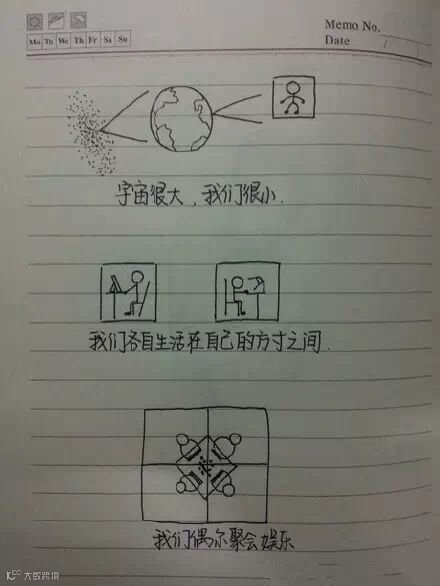 Memo No.
Mo Tu We Th Fr Sa Su
Date / /
宇宙很大,我们很小.
我们各自生活在自己的方寸之间.
我们偶尔聚会娱乐
大数跨境